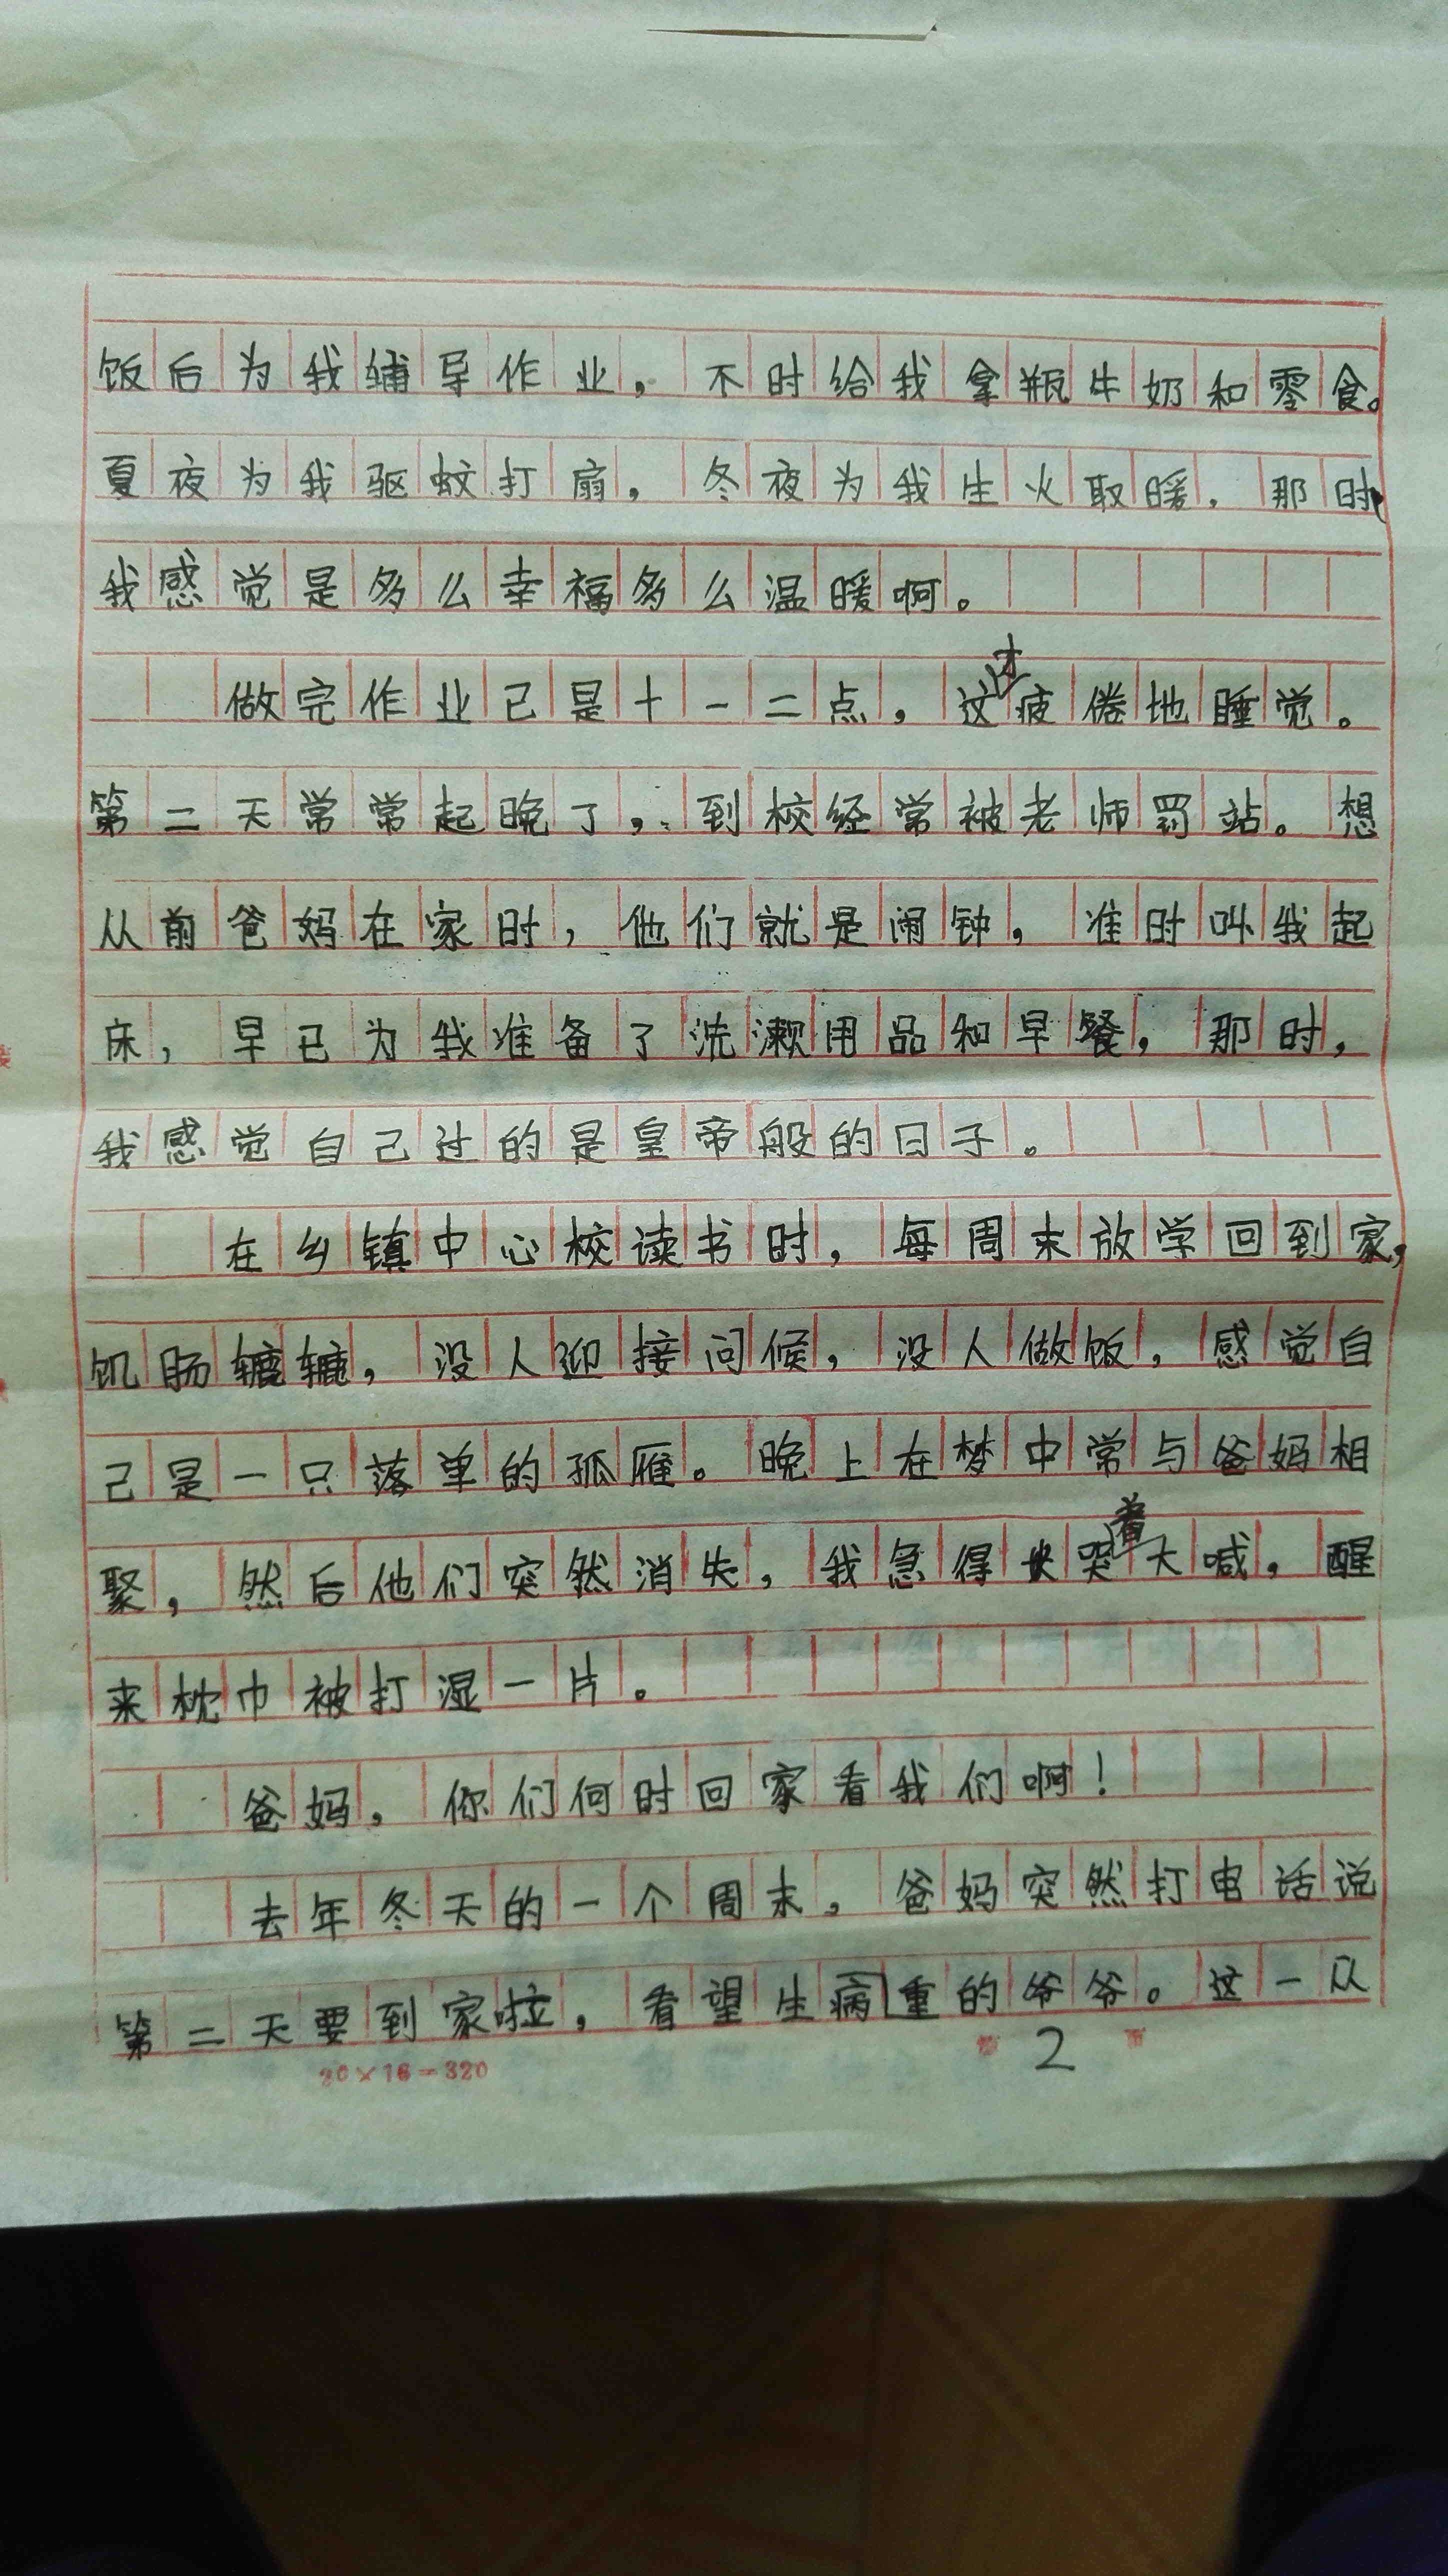 饭后为我辅导作业，不时给我拿瓶牛奶和零食。
夏夜为我驱蚊打扇，冬夜为我生火取暖，那时
我感觉是多么幸福多么温暖啊。
做完作业已是十一二点，这才疲倦地睡觉。
第二天常常起晚了，到校经常被老师罚站。想
从前爸妈在家时，他们就是闹钟，准时叫我起
床，早已为我准备了洗漱用品和早餐，那时，
我感觉自己过的是皇帝般的日子。
在乡镇中心校读书时，每周末放学回到家，
饥肠辘辘，没人迎接问候，没人做饭，感觉自
己是一只落单的孤雁。晚上在梦中常与爸妈相
聚，然后他们突然消失，我急得哭着大喊，醒
来枕巾被打湿一片。
爸妈，你们何时回家看我们啊！
去年冬天的一个周末，爸妈突然打电话说
第二天要到家啦，看望生病重的爷爷。这一从
20×16=320
2